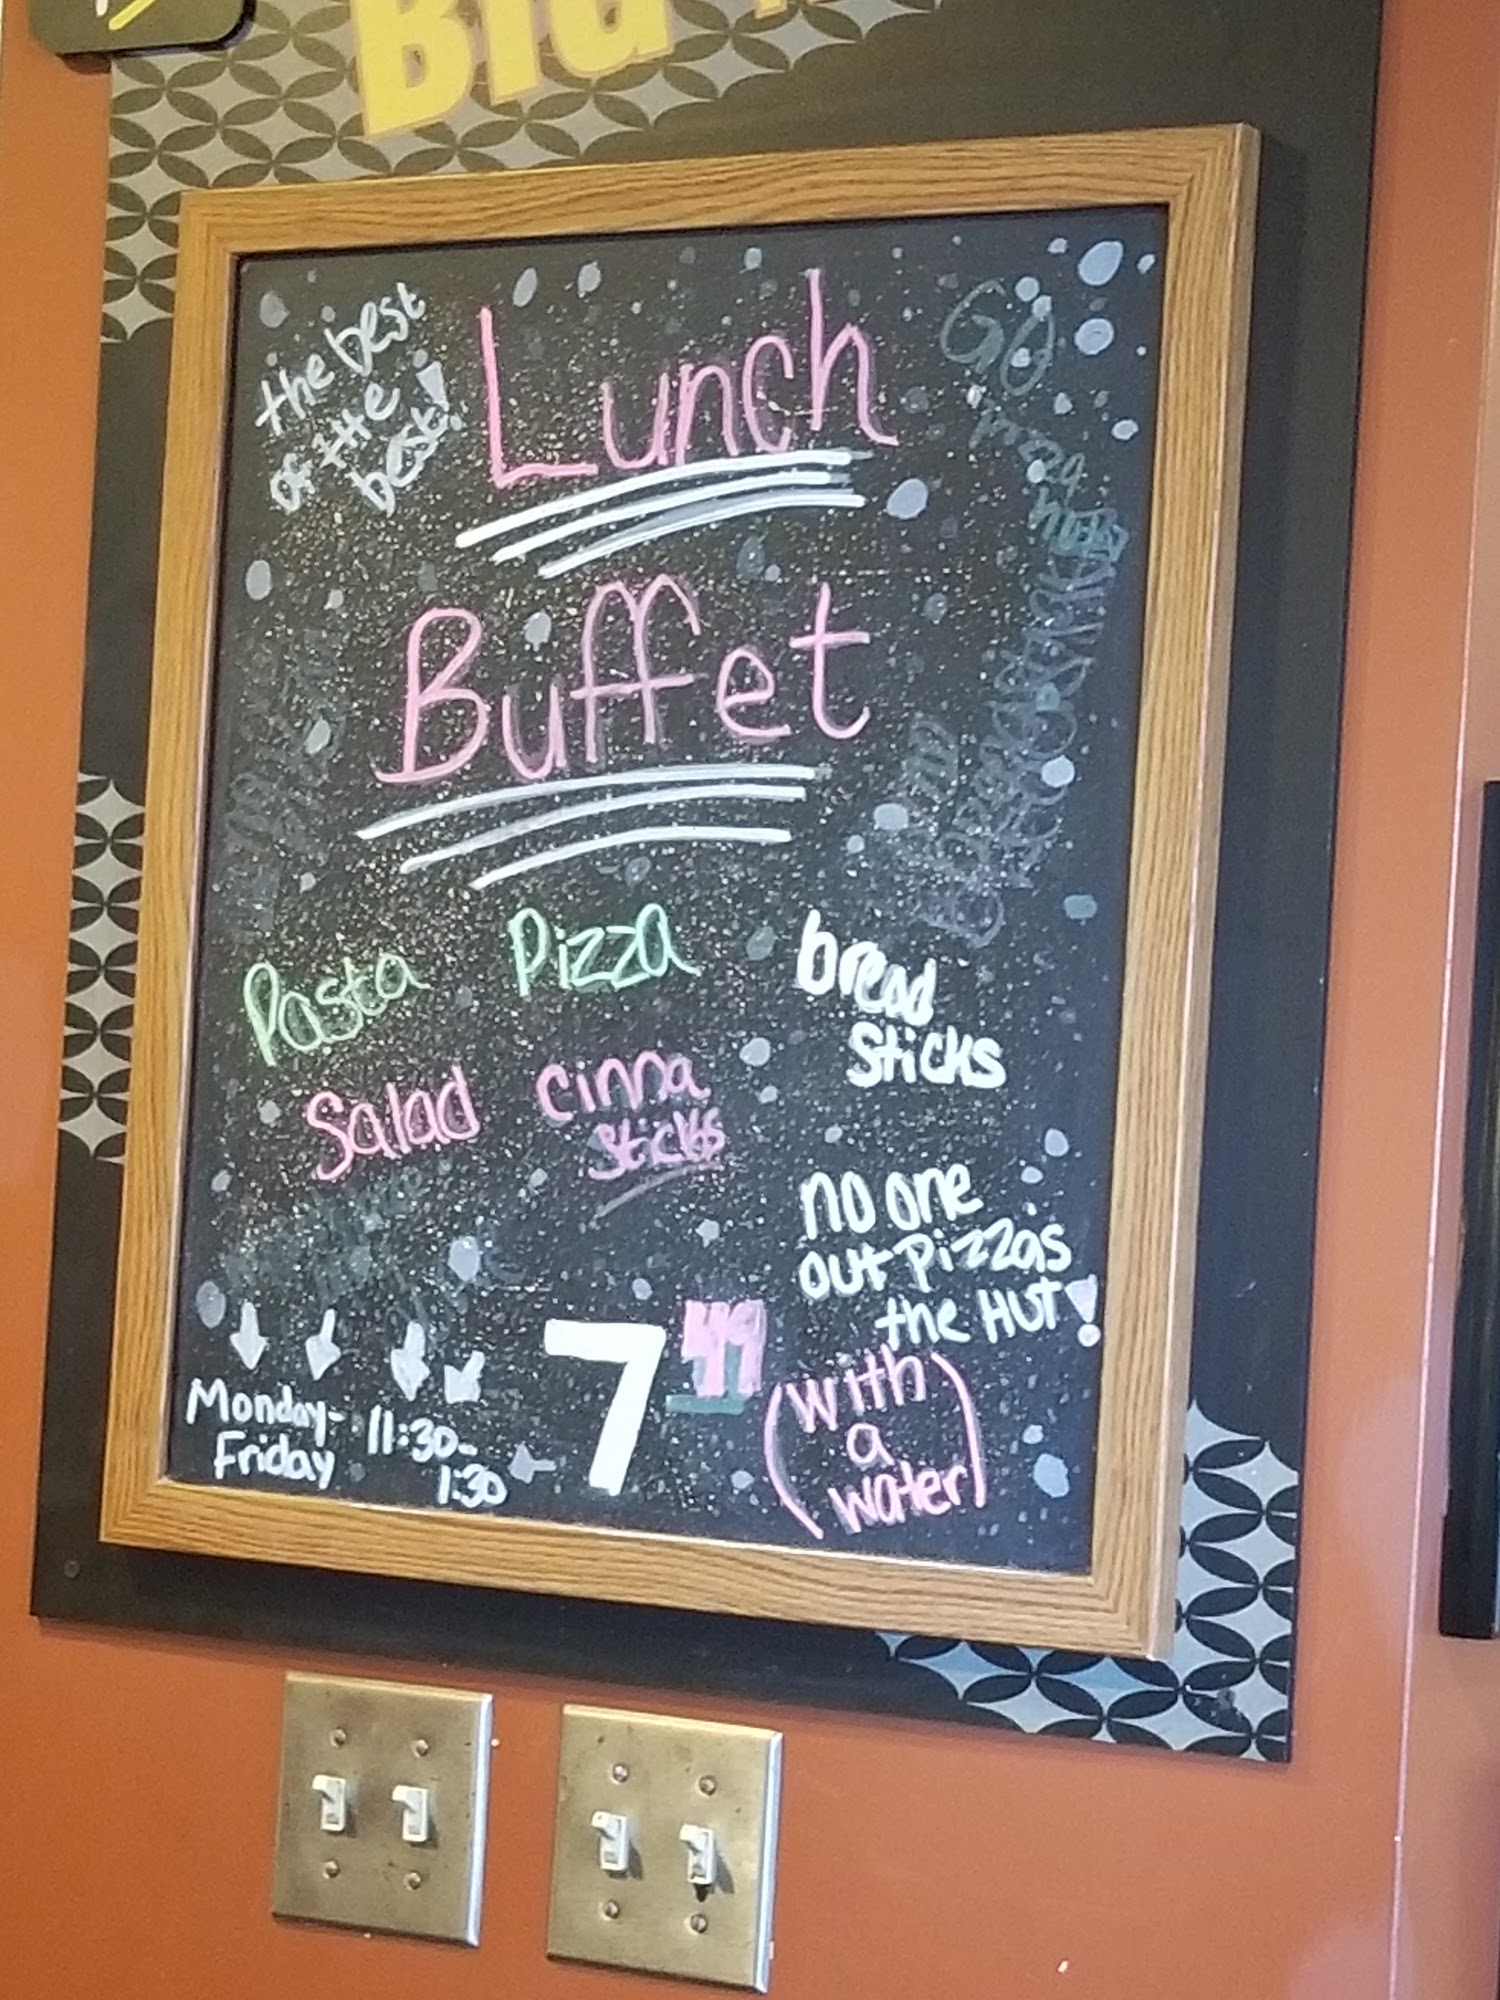 the best
of the
best!
Lunch
Buffet
Pasta
Pizza
bread
Sticks
Salad
cinna
sticks
no one
out pizzas
the HUT!
7 49
(with
a
water)
Monday-
Friday
11:30-
1:30
GO
pizza